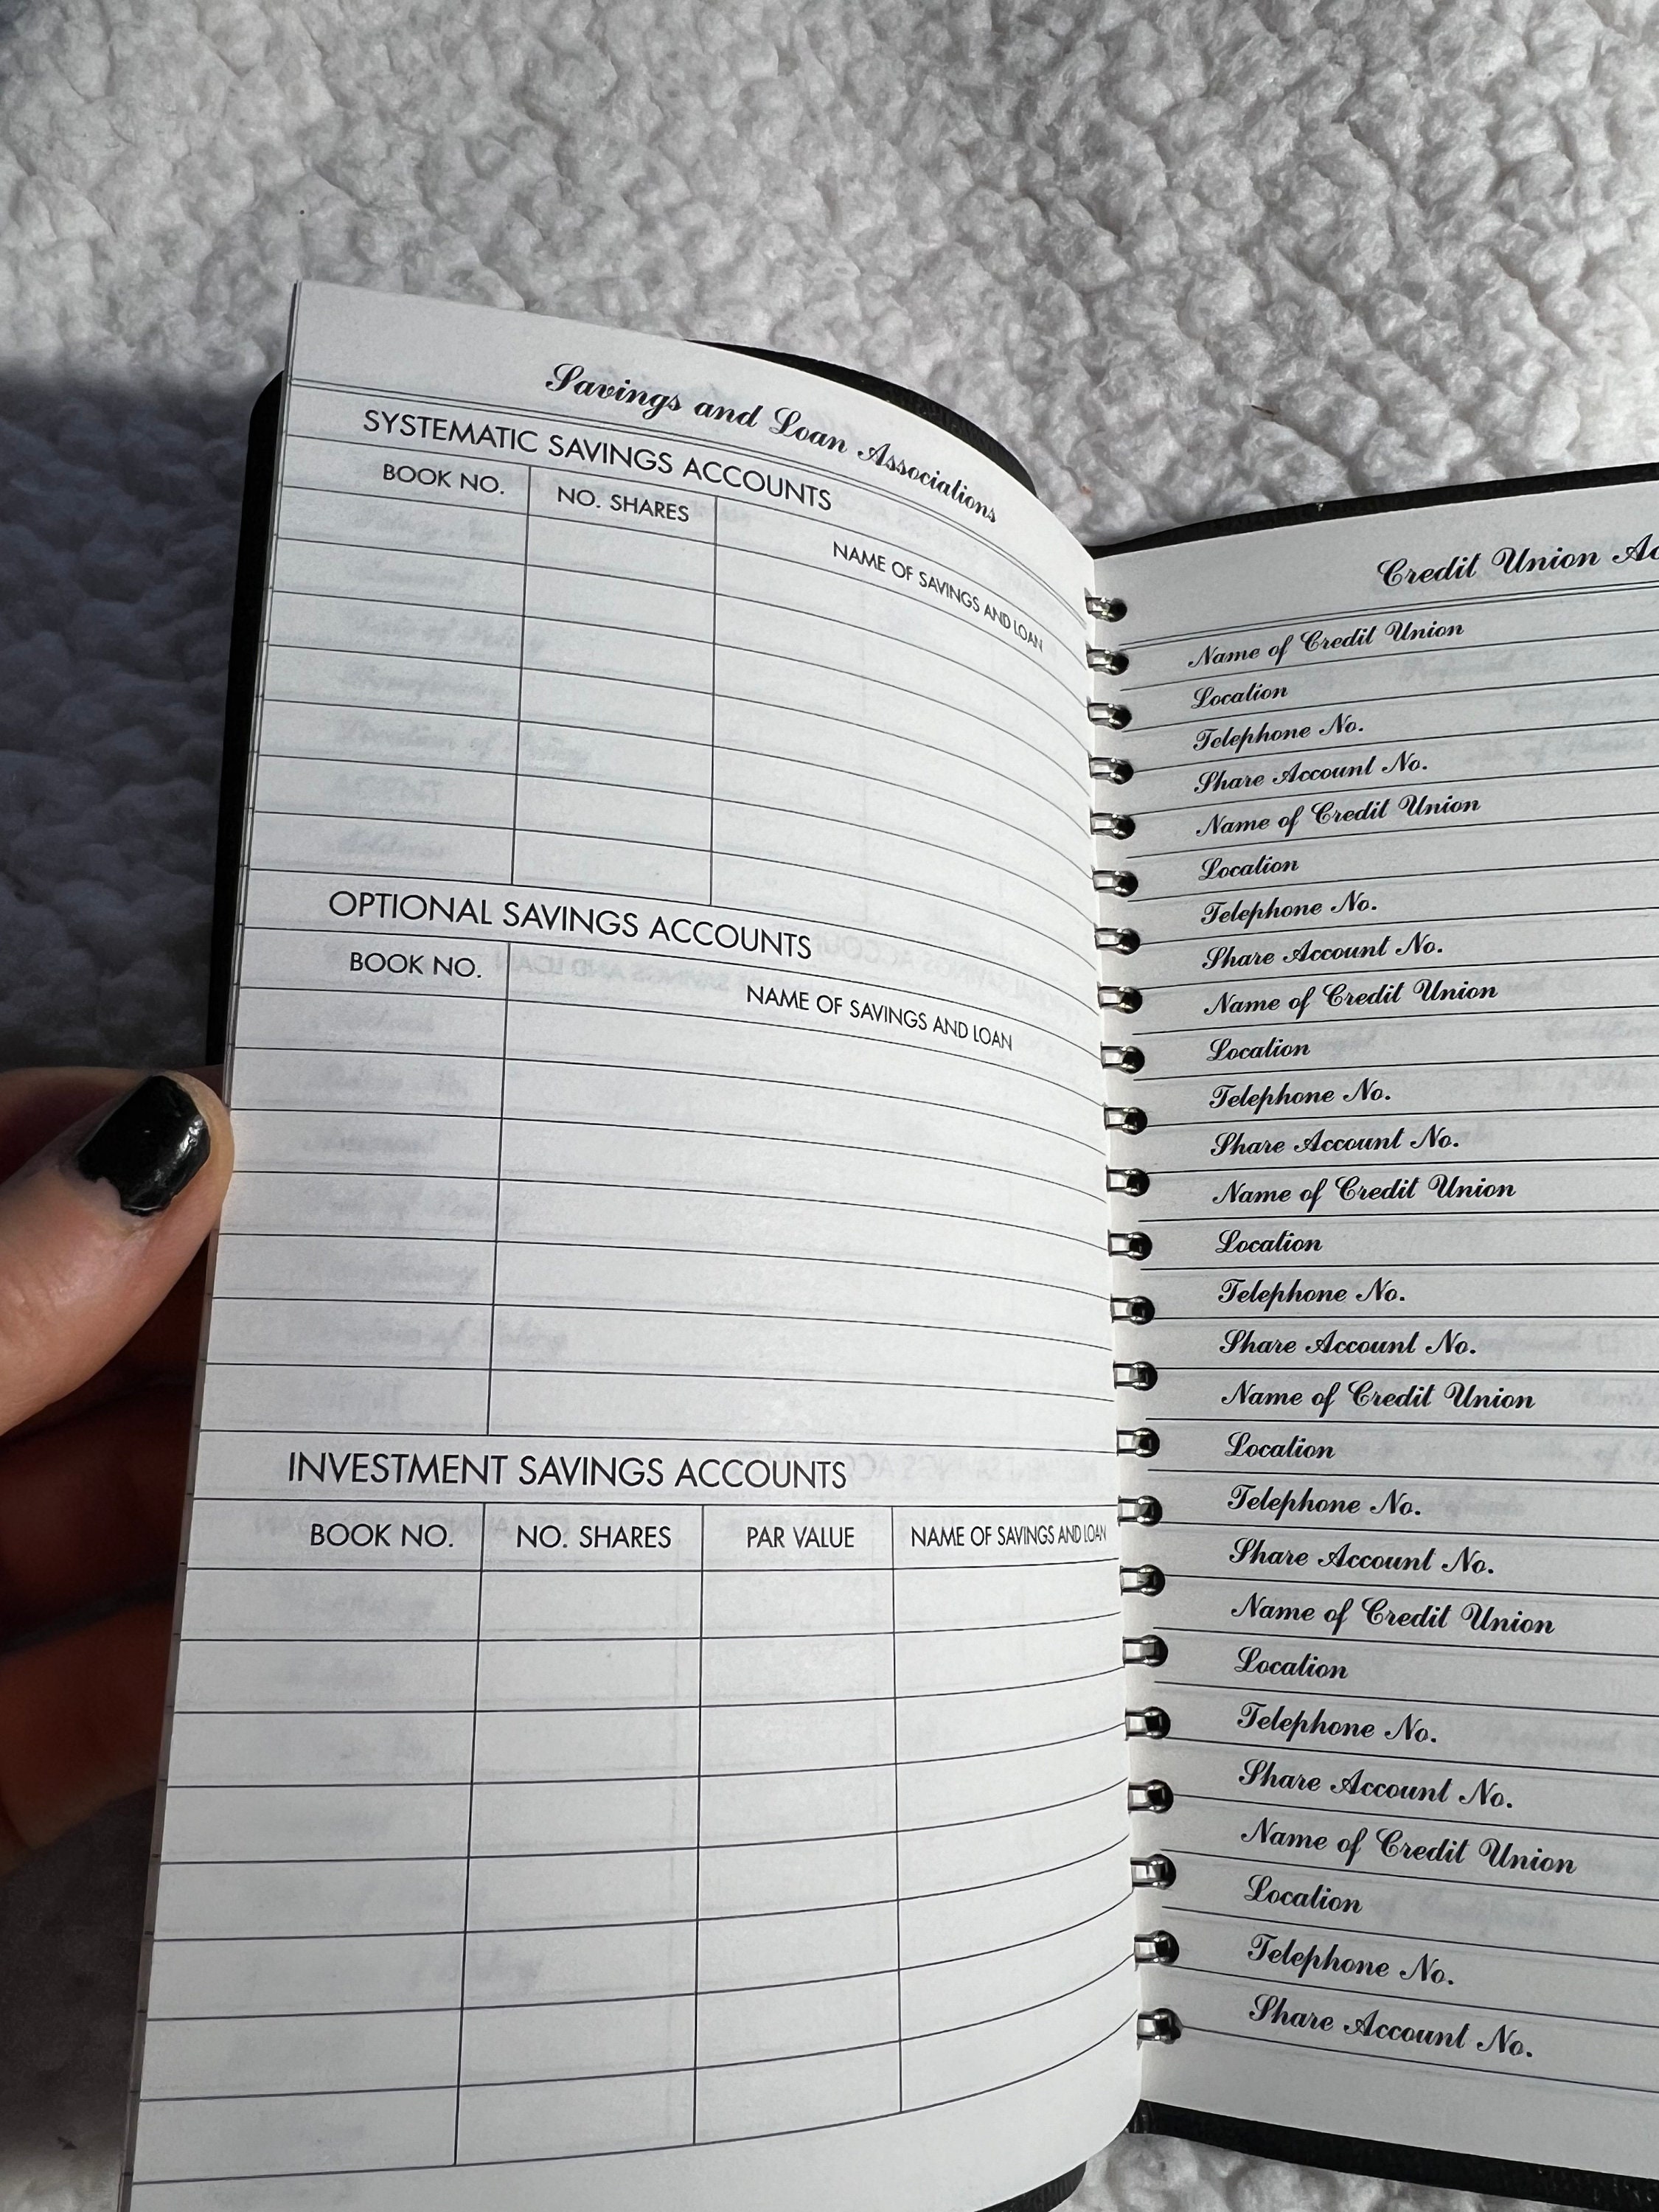 Savings and Loan Associations
SYSTEMATIC SAVINGS ACCOUNTS
BOOK NO. NO. SHARES NAME OF SAVINGS AND LOAN
OPTIONAL SAVINGS ACCOUNTS
BOOK NO. NAME OF SAVINGS AND LOAN
INVESTMENT SAVINGS ACCOUNTS
BOOK NO. NO. SHARES PAR VALUE NAME OF SAVINGS AND LOAN
Credit Union
Name of Credit Union
Location
Telephone No.
Share Account No.
Name of Credit Union
Location
Telephone No.
Share Account No.
Name of Credit Union
Location
Telephone No.
Share Account No.
Name of Credit Union
Location
Telephone No.
Share Account No.
Name of Credit Union
Location
Telephone No.
Share Account No.
Name of Credit Union
Location
Telephone No.
Share Account No.
Name of Credit Union
Location
Telephone No.
Share Account No.